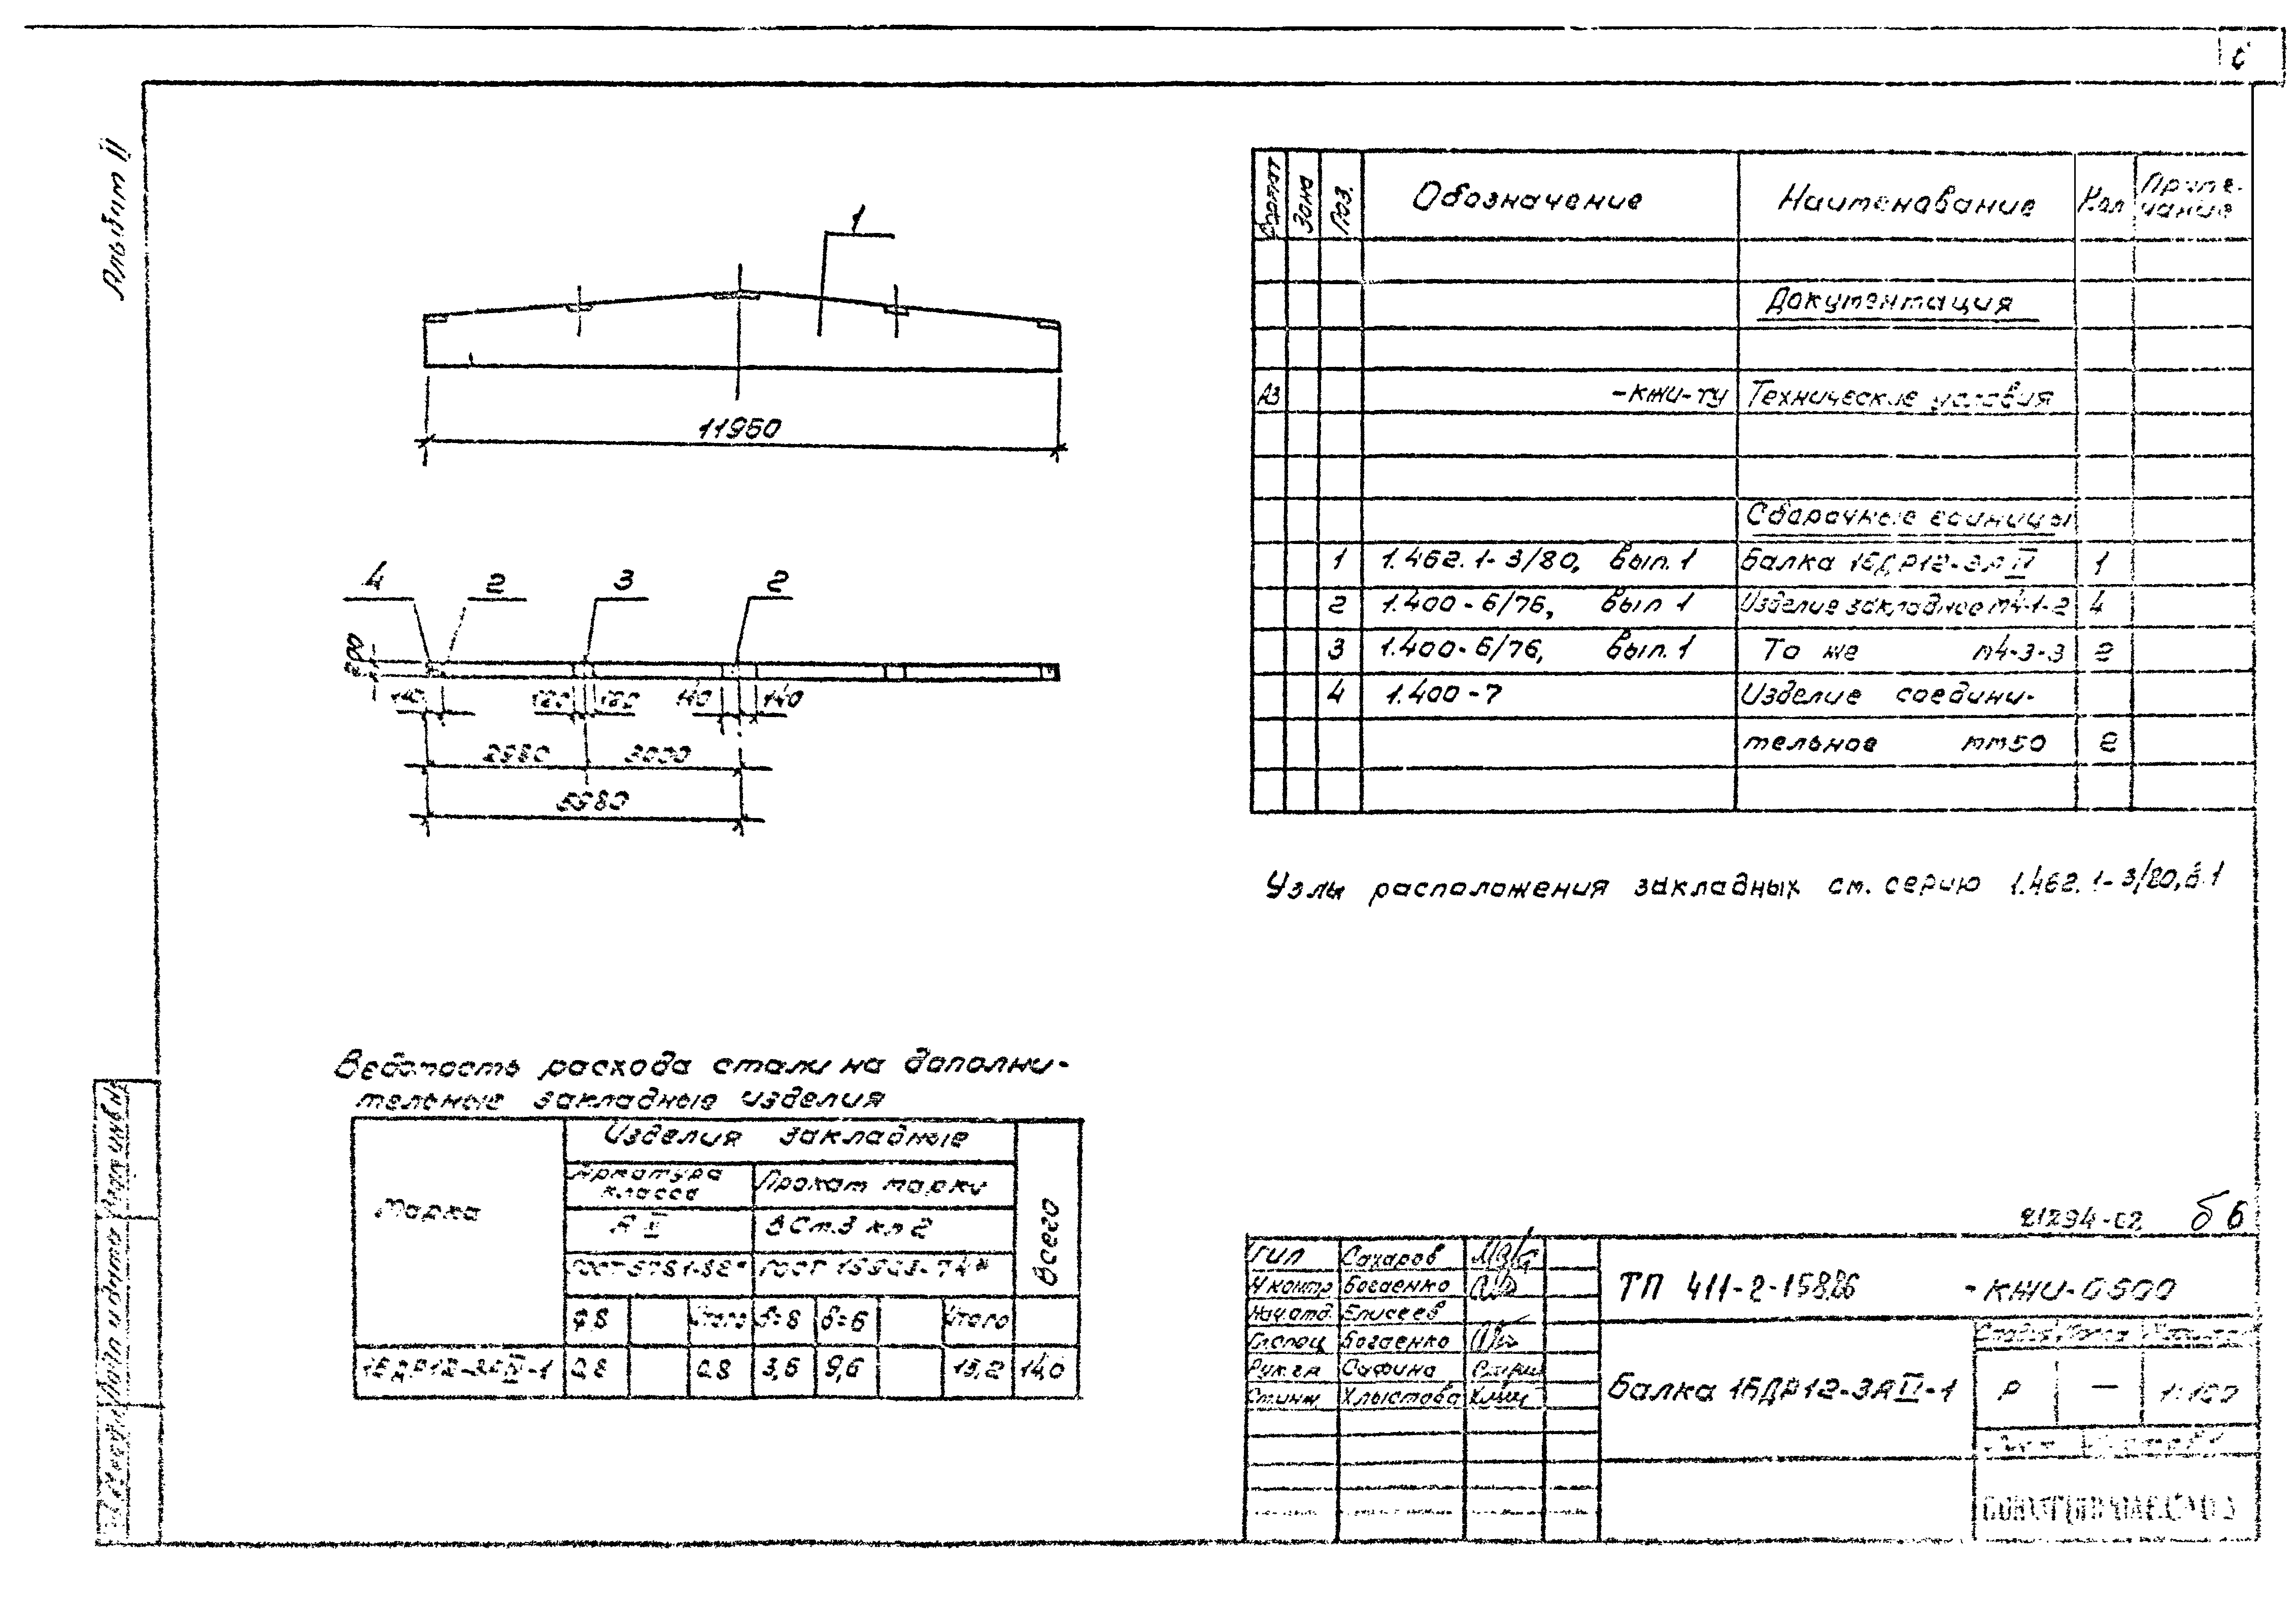 Альбом II
1
11960
4 2 3 2
200
140 140
2980 3000
5980
Формат Зона Поз. Обозначение Наименование Кол Приме-
чание
Документация
А3 -КЖИ-ТУ Технические условия
Сборочные единицы
1 1.462.1-3/80, вып.1 Балка 1БДР12-3АIV 1
2 1.400-6/76, вып 1 Изделие закладное М4-1-2 4
3 1.400-6/76, вып.1 То же М4-3-3 2
4 1.400-7 Изделие соедини-
тельное ММ50 2
Узлы расположения закладных см. серию 1.462.1-3/80, в.1
Ведомость расхода стали на дополни-
тельные закладные изделия
Марка Изделия закладные Всего
Арматура
класса Прокат марки
ВСт.3 кп 2
ГОСТ 5781-82* ГОСТ 19903-74*
ф8 Итого δ=8 δ=6 Итого
1БДР12-3АIV-1 0,8 0,8 3,6 9,6 13,2 14,0
21294-02 б 6
ГИП Сахаров
Н контр Богаенко
Нач.отд. Елисеев
Гл.спец Богаенко
Рук.гр Сафина
Ст.инж Хлыстова
ТП 411-2-158.86 -КЖИ-0500
Балка 1БДР12-3АIV-1
Стадия Масса Масштаб
Р — 1:100
Лист Листов 1